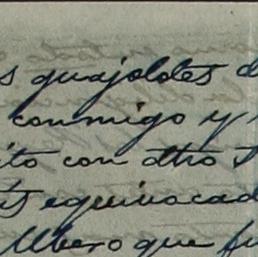 s guajolotes d
conmigo y
ito con otro
ís equivocad
Ubero que fu